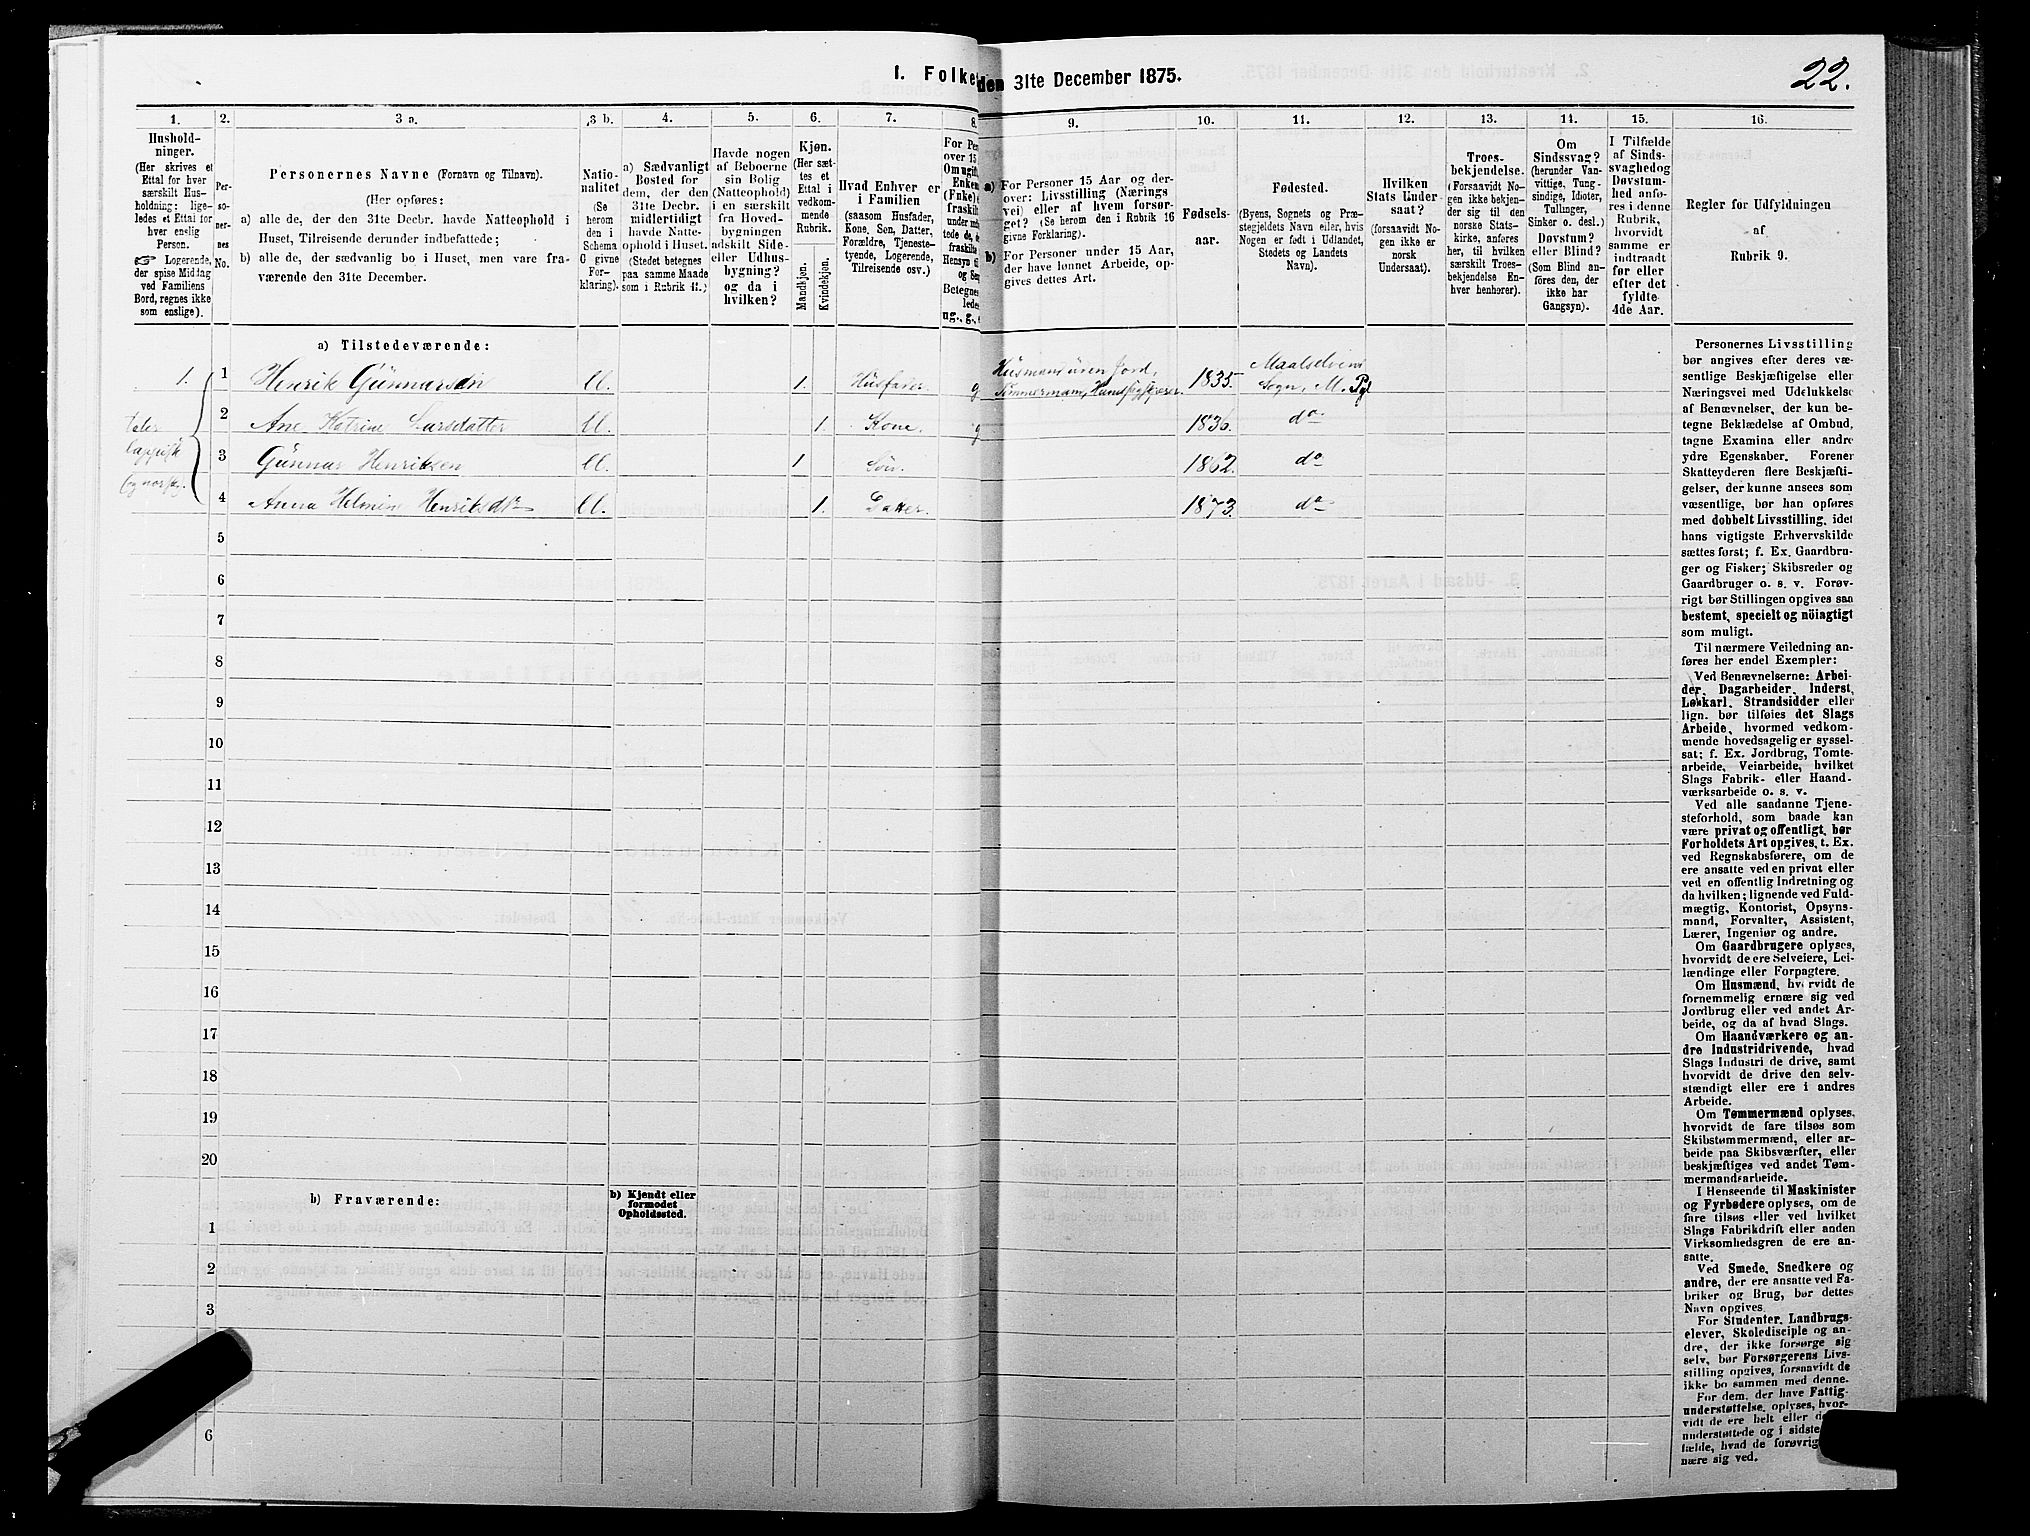 1. Folke den 31te December 1875.
22.
1.
2.
3 a.
3 b.
4.
5.
6.
7.
8.
9.
10.
11.
12.
13.
14.
15.
16.
Hushold-
ninger.
(Her skrives et
Ettal for hver
særskilt Hus-
holdning: lige-
ledes et Ettal for
hver enslig
Person.
☞ Logerende,
der spise Middag
ved Familiens
Bord, regnes ikke
som enslige).
Per-
so-
ner-
nes
No.
Personernes Navne (Fornavn og Tilnavn).
(Her opføres:
a) alle de, der den 31te Decbr. havde Natteophold i
Huset, Tilreisende derunder indbefattede;
b) alle de, der sædvanlig bo i Huset, men vare fra-
værende den 31te December.
Natio-
nalitet
(Se
herom
den i
Schema
C givne
For-
klaring).
a) Sædvanligt
Bosted for
dem, der den
31te Decbr.
midlertidigt
havde Natte-
ophold i Huset.
(Stedet betegnes
paa samme Maade
som i Rubrik 11.)
Havde nogen
af Beboerne
sin Bolig
(Natteophold)
i en særskilt
fra Hoved-
bygningen
adskilt Side-
eller Udhus-
bygning?
og da i
hvilken?
Kjøn.
(Her sæt-
tes et
Ettal i
vedkom-
mende
Rubrik.
Mandkjøn.
Kvindekjøn.
Hvad Enhver er
i Familien
(saasom Husfader,
Kone, Søn, Datter,
Forældre, Tjeneste-
tyende, Logerende,
Tilreisende osv.)
For Per
over 15
Om ugift,
Enken
(Fnke)
fraskilt
under
tede de,
fraskilte
Hensyn til
og Sen
Betegnes
lede
ug., g.,
a) For Personer 15 Aar og der-
over: Livsstilling (Nærings
vei) eller af hvem forsør-
get? (Se herom den i Rubrik 16
givne Forklaring).
b) For Personer under 15 Aar,
der have lønnet Arbeide, op-
gives dettes Art.
Fødsels-
aar.
Fødested.
(Byens, Sognets og Præ-
stegjeldets Navn eller, hvis
Nogen er født i Udlandet,
Stedets og Landets
Navn).
Hvilken
Stats Under-
saat?
(forsaavidt No-
gen ikke er
norsk
Undersaat).
Troes-
bekjendelse.
(Forsaavidt No-
gen ikke bekjen-
der sig til den
norske Stats-
kirke, anføres
her, til hvilken
særskilt Troes-
bekjendelse En-
hver henhører).
Om
Sindssvag?
(herunder Van-
vittige, Tung-
sindige, Idioter,
Tullinger,
Sinker o. desl.)
Døvstum?
eller Blind?
(Som Blind an-
føres den, der
ikke har
Gangsyn).
I Tilfælde
af Sinds-
svaghed og
Døvstum-
hed anfø-
res i denne
Rubrik,
hvorvidt
samme er
indtraadt
før eller
efter det
fyldte
4de Aar.
Regler for Udfyldningen
af
Rubrik 9.
a) Tilstedeværende:
1. 1 Henrik Gunnarsen ll. 1. Husfader. g Husmand uden Jord, 1835. Maalselvens
Sogn, M. Pgj
2 Ane Katrine Larsdatter ll. 1. Kone. g 1836. do
lappisk
3 Gunnar Henriksen ll. 1 Søn. 1862. do
og norsk.
4 Anna Helmine Henriksdtr ll. 1. Datter. 1873. do
5
6
7
8
9
10
11
12
13
14
15
16
17
18
19
20
b) Fraværende:
b) Kjendt eller
formodet
Opholdssted.
1
2
3
6
Personernes Livsstilling
bør angives efter deres væ-
sentlige Beskjæftigelse eller
Næringsvei med Udelukkelse
af Benævnelser, der kun be-
tegne Beklædelse af Ombud,
tagne Examina eller andre
ydre Egenskaber. Forener
Skatteyderen flere Beskjæfti-
gelser, der kunne ansees som
væsentlige, bør han opføres
med dobbelt Livsstilling, idet
hans vigtigste Erhvervskilde
sættes først; f. Ex. Gaardbru-
ger og Fisker; Skibsreder og
Gaardbruger o. s. v. Forøv-
rigt bør Stillingen opgives saa
bestemt, specielt og nöiagtigt
som muligt.
Til nærmere Veiledning an-
føres her endel Exempler:
Ved Benævnelserne: Arbei-
der, Dagarbeider, Inderst,
Løskarl, Strandsidder eller
lign. bør tilføies det Slags
Arbeide, hvormed vedkom-
mende hovedsagelig er syssel-
sat; f. Ex. Jordbrug, Tomte-
arbeide, Veiarbeide, hvilket
Slags Fabrik- eller Haand-
værksarbeide o. s. v.
Ved alle saadanne Tjene-
steforhold, som baade kan
være privat og offentligt, bør
Forholdets Art opgives, t. Ex.
ved Regnskabsførere, om de
ere ansatte ved en privat eller
ved en offentlig Indretning og
da hvilken; lignende ved Fuld-
mægtig, Kontorist, Opsyns-
mand, Forvalter, Assistent,
Lærer, Ingeniør og andre.
Om Gaardbrugere oplyses,
hvorvidt de ere Selveiere, Lei-
lændinge eller Forpagtere.
Om Husmænd, hvorvidt de
fornemmelig ernære sig ved
Jordbrug eller ved andet Ar-
beide, og da af hvad Slags.
Om Haandværkere og an-
dre Industridrivende, hvad
Slags Industri de drive, samt
hvorvidt de drive den selv-
stændigt eller ere i andres
Arbeide.
Om Tømmermænd oplyses,
hvorvidt de fare tilsøs som
Skibstømmermænd, eller ar-
beide paa Skibsværfter, eller
beskjæftiges ved andet Tøm-
mermandsarbeide.
I Henseende til Maskinister
og Fyrbødere oplyses, om de
fare tilsøs eller ved hvilket
Slags Fabrikdrift eller anden
Virksomhedsgren de ere an-
satte.
Ved Smede, Snedkere og
andre, der ere ansatte ved Fa-
briker og Brug, bør dettes
Navn opgives.
For Studenter, Landbrugs-
elever, Skoledisciple og an-
dre, der ikke forsørge sig
selv, bør Forsørgerens Livs-
stilling opgives, forsaavidt de
ikke bo sammen med denne.
For dem, der have Fattig-
understøttelse, oplyses, hvor-
vidt de ere helt eller d
understøttede og i sidste
fælde, hvad de forøvrig
nære sig ved.